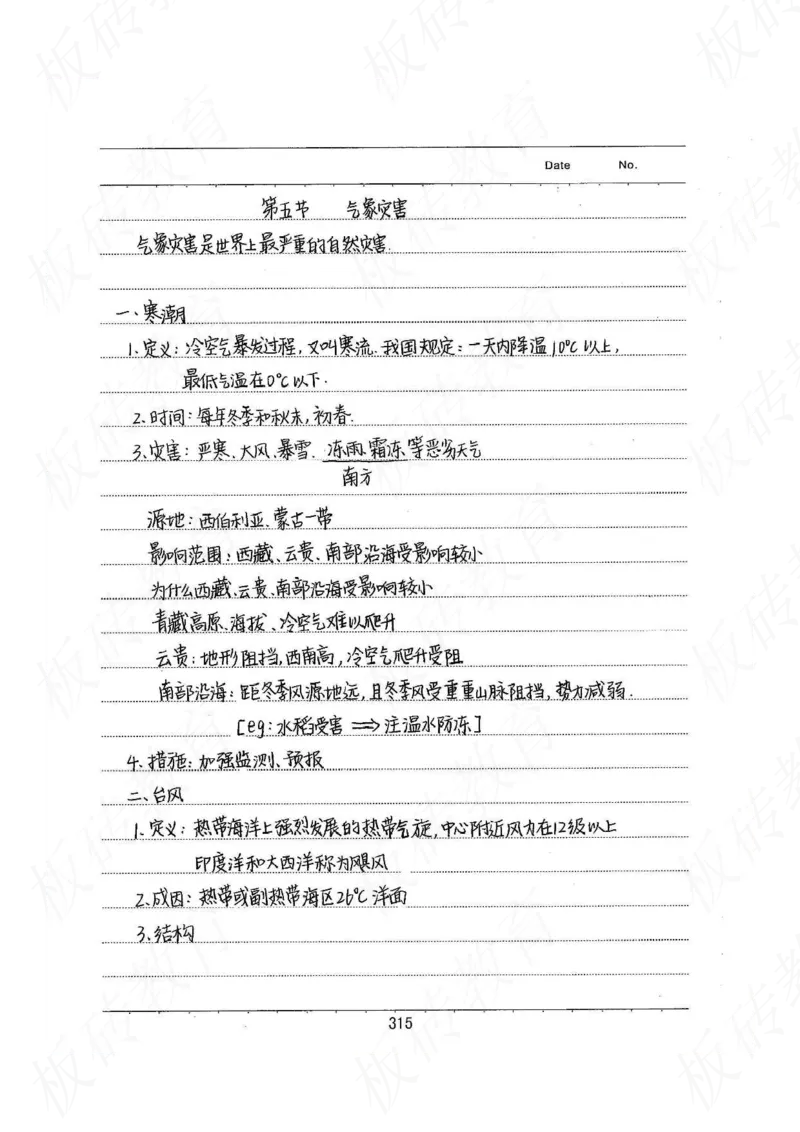 Date No.
第五节 气象灾害
气象灾害是世界上最严重的自然灾害
一、寒潮
1.定义：冷空气暴发过程，又叫寒流.我国规定：一天内降温10℃以上，
最低气温在0℃以下.
2.时间：每年冬季和秋末，初春.
3.灾害：严寒、大风、暴雪、冻雨、霜冻等恶劣天气
南方
源地：西伯利亚、蒙古一带
影响范围：西藏、云贵、南部沿海受影响较小
为什么西藏、云贵、南部沿海受影响较小
青藏高原、海拔、冷空气难以爬升
云贵：地形阻挡，西南高，冷空气爬升受阻
南部沿海：距冬季风源地远，且冬季风受重重山脉阻挡，势力减弱.
[eg：水稻受害⟹注温水防冻]
4、措施：加强监测、预报
二、台风
1.定义：热带海洋上强烈发展的热带气旋，中心附近风力在12级以上
印度洋和大西洋称为飓风
2.成因：热带或副热带海区26℃洋面
3.结构
315
板砖教育